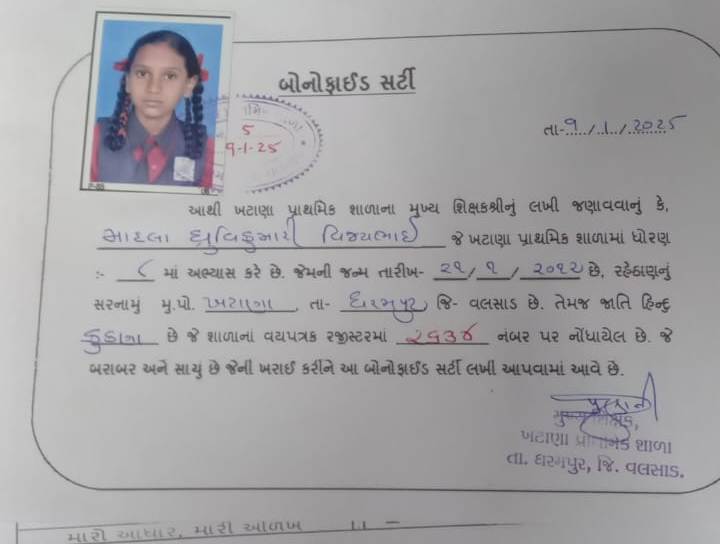 બોનોફાઈડ સર્ટી
5
9-1-25
તા-૧/૧/૨૦૨૫
આથી ખટાણા પ્રાથમિક શાળાના મુખ્ય શિક્ષકશ્રીનું લખી જણાવવાનું કે,
માહલા ધ્રુવિકુમારી વિજયભાઈ જે ખટાણા પ્રાથમિક શાળામાં ધોરણ
:- ૮ માં અભ્યાસ કરે છે. જેમની જન્મ તારીખ- ૨૧/૧/૨૦૧૨ છે, રહેઠાણનું
સરનામું મુ.પો. ખટાણા, તા- ધરમપુર જિ- વલસાડ છે. તેમજ જાતિ હિન્દુ
કુકણા છે જે શાળાનાં વયપત્રક રજીસ્ટરમાં ૨૬૩૪ નંબર પર નોંધાયેલ છે. જે
બરાબર અને સાચું છે જેની ખરાઈ કરીને આ બોનોફાઈડ સર્ટી લખી આપવામાં આવે છે.
મુખ્ય શિક્ષક,
ખટાણા પ્રાથમિક શાળા
તા. ધરમપુર, જિ. વલસાડ.
મારો આધાર, મારી ઓળખ